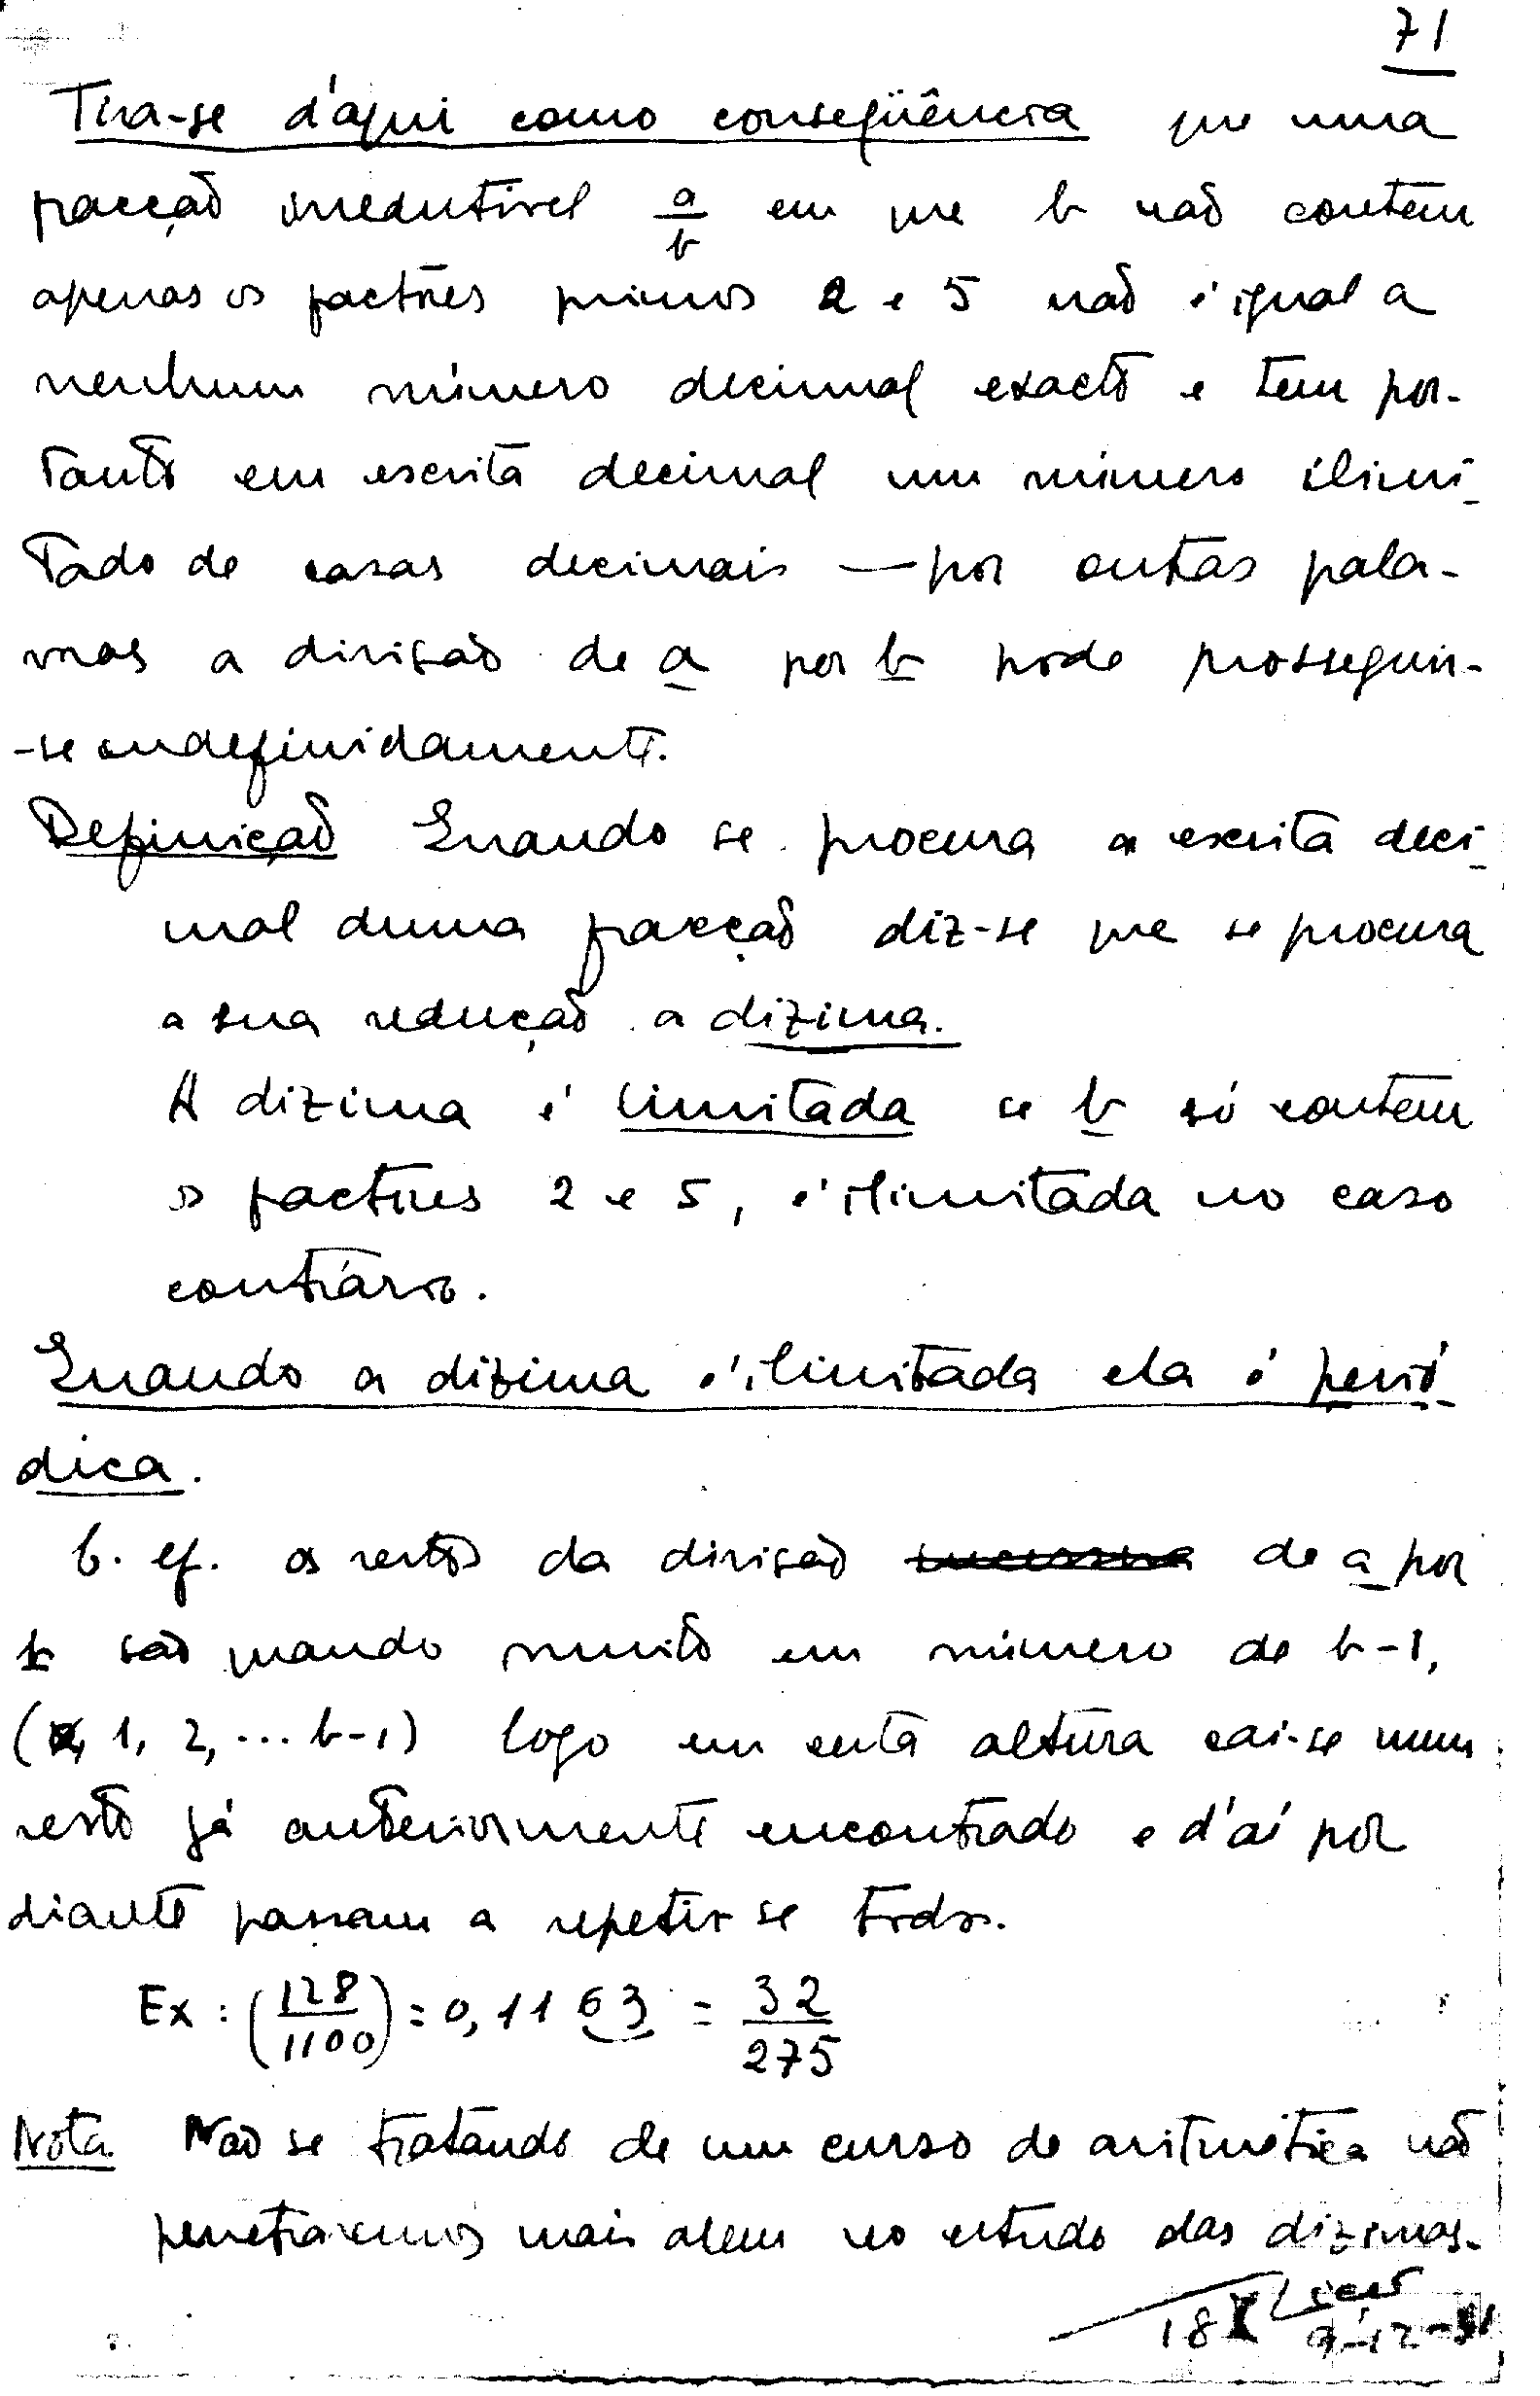 71
Tira-se d'aqui como conseqüência que uma
fracção irredutível a/b em que b não contem
apenas os factores primos 2 e 5 não é igual a
nenhum número decimal exacto e tem por-
tanto em escrita decimal um número ilimi-
tado de casas decimais — por outras pala-
vras a divisão de a por b pode prosseguir-
-se indefinidamente.
Definição Quando se procura a escrita deci-
mal duma fracção diz-se que se procura
a sua redução a dízima.
A dízima é limitada se b só contem
os factores 2 e 5, é ilimitada no caso
contrário.
Quando a dízima é ilimitada ela é perió-
dica.
C. ef. os restos da divisão sucessiva de a por
b são quando muito em número de b-1,
(1, 2, ... b-1) logo em certa altura cai-se num
resto já anteriormente encontrado e d'aí por
diante passam a repetir-se todos.
Ex: (128/1100) = 0,1163 = 32/275
Nota Não se tratando de um curso de aritmética não
penetraremos mais alem no estudo das dízimas.
18 Liceu
9-12-